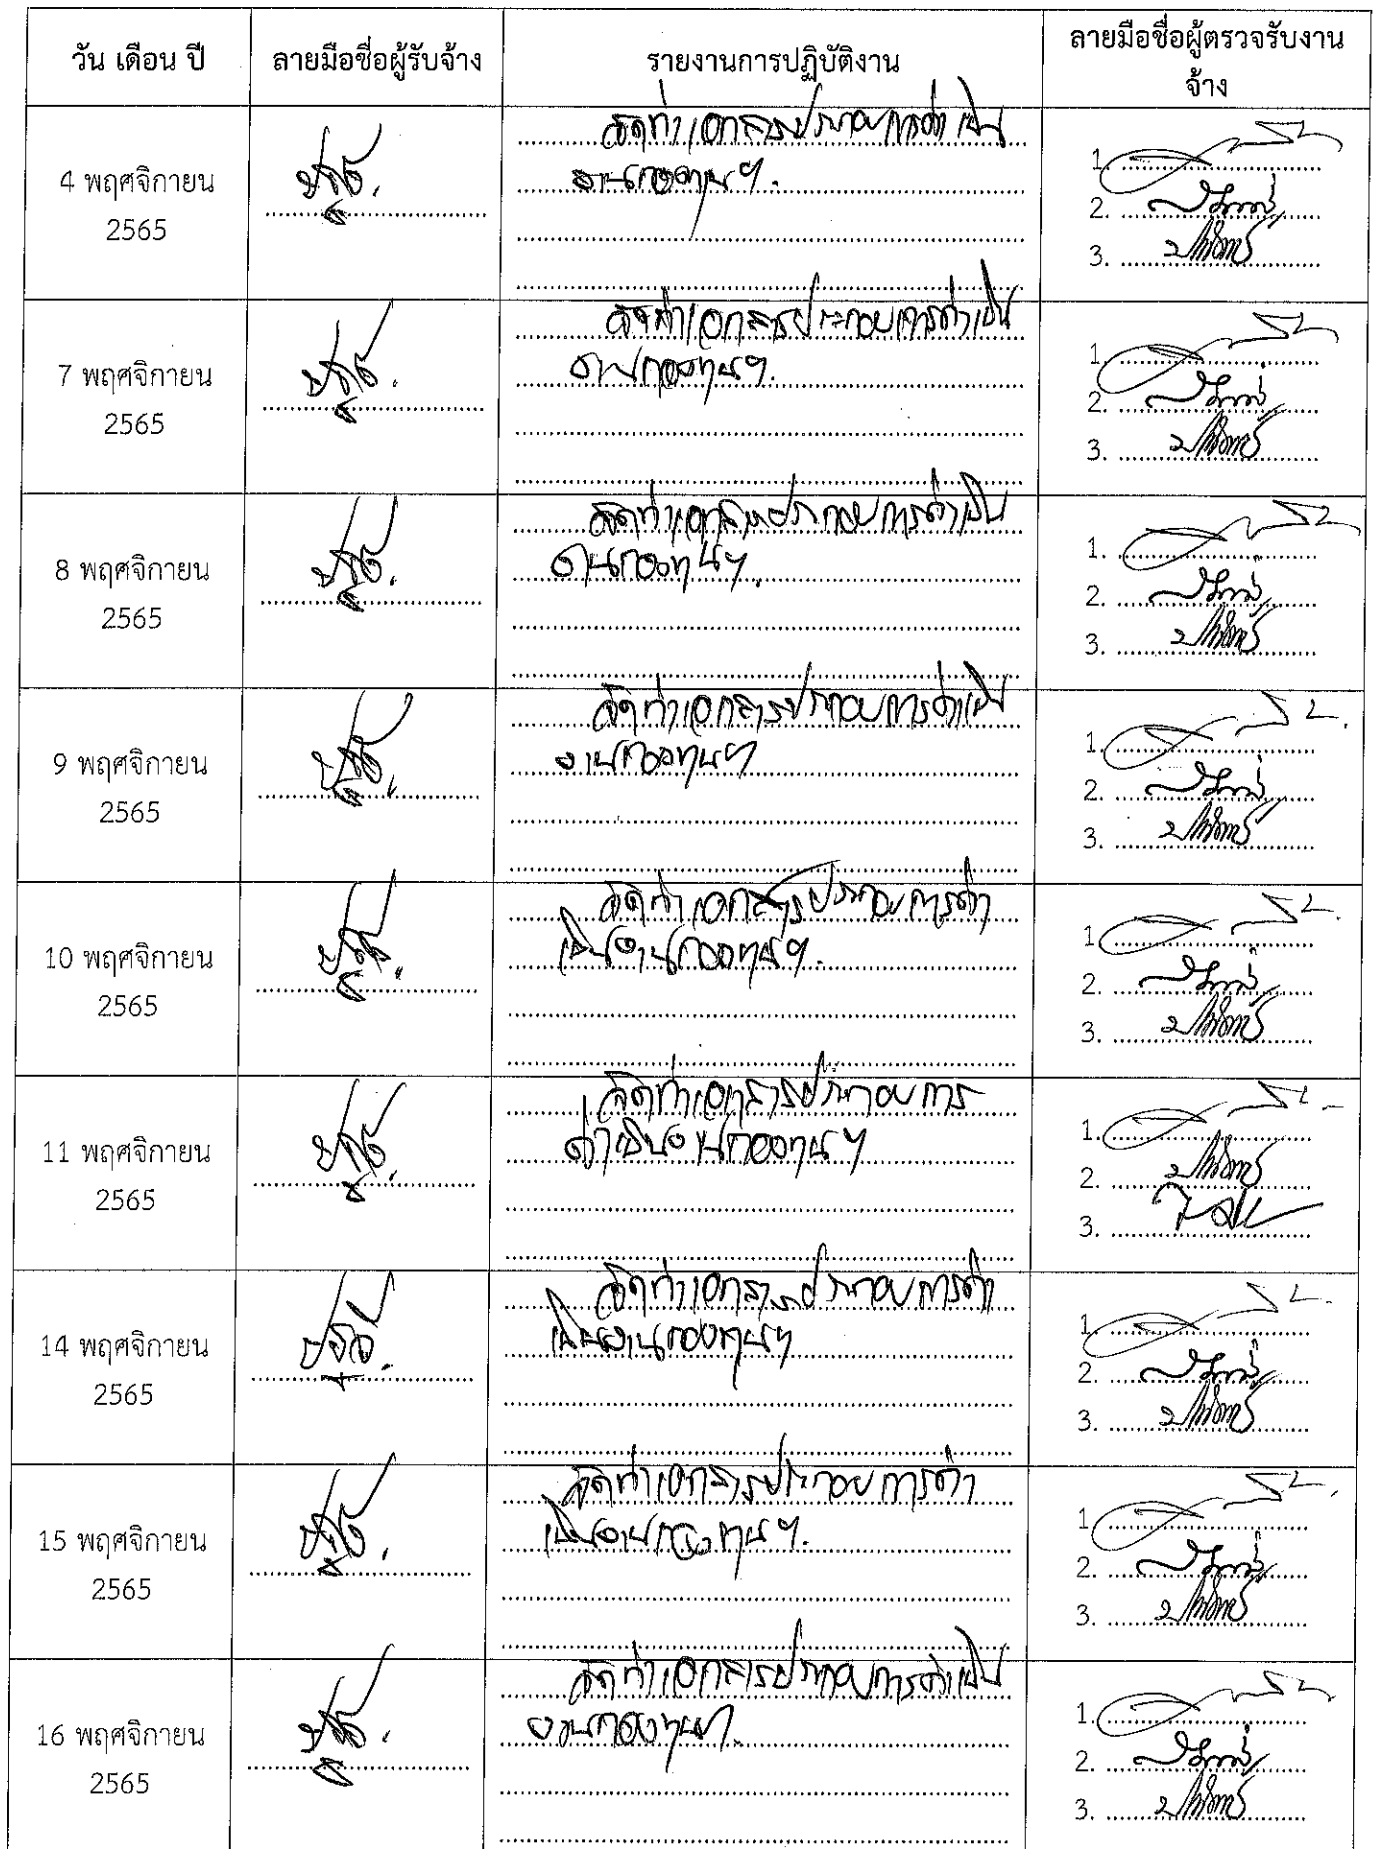 วัน เดือน ปี
ลายมือชื่อผู้รับจ้าง
รายงานการปฏิบัติงาน
ลายมือชื่อผู้ตรวจรับงาน
จ้าง
4 พฤศจิกายน
2565
จัดทำเอกสารประกอบการดำเนิน
งานกองทุนฯ.
1.
2.
3.
7 พฤศจิกายน
2565
จัดทำเอกสารประกอบการดำเนิน
งานกองทุนฯ.
1.
2.
3.
8 พฤศจิกายน
2565
จัดทำเอกสารประกอบการดำเนิน
งานกองทุนฯ.
1.
2.
3.
9 พฤศจิกายน
2565
จัดทำเอกสารประกอบการดำเนิน
งานกองทุนฯ
1.
2.
3.
10 พฤศจิกายน
2565
จัดทำเอกสารประกอบการดำ
เนินงานกองทุนฯ.
1.
2.
3.
11 พฤศจิกายน
2565
จัดทำเอกสารประกอบการ
ดำเนินงานกองทุนฯ
1.
2.
3.
14 พฤศจิกายน
2565
จัดทำเอกสารประกอบการดำ
เนินงานกองทุนฯ
1.
2.
3.
15 พฤศจิกายน
2565
จัดทำเอกสารประกอบการดำ
เนินงานกองทุนฯ.
1.
2.
3.
16 พฤศจิกายน
2565
จัดทำเอกสารประกอบการดำเนิน
งานกองทุนฯ.
1.
2.
3.